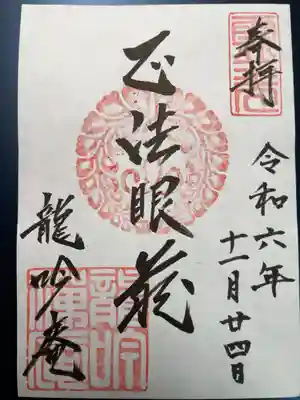 奉拝
令和六年
十一月廿四日
正法眼蔵
龍吟庵